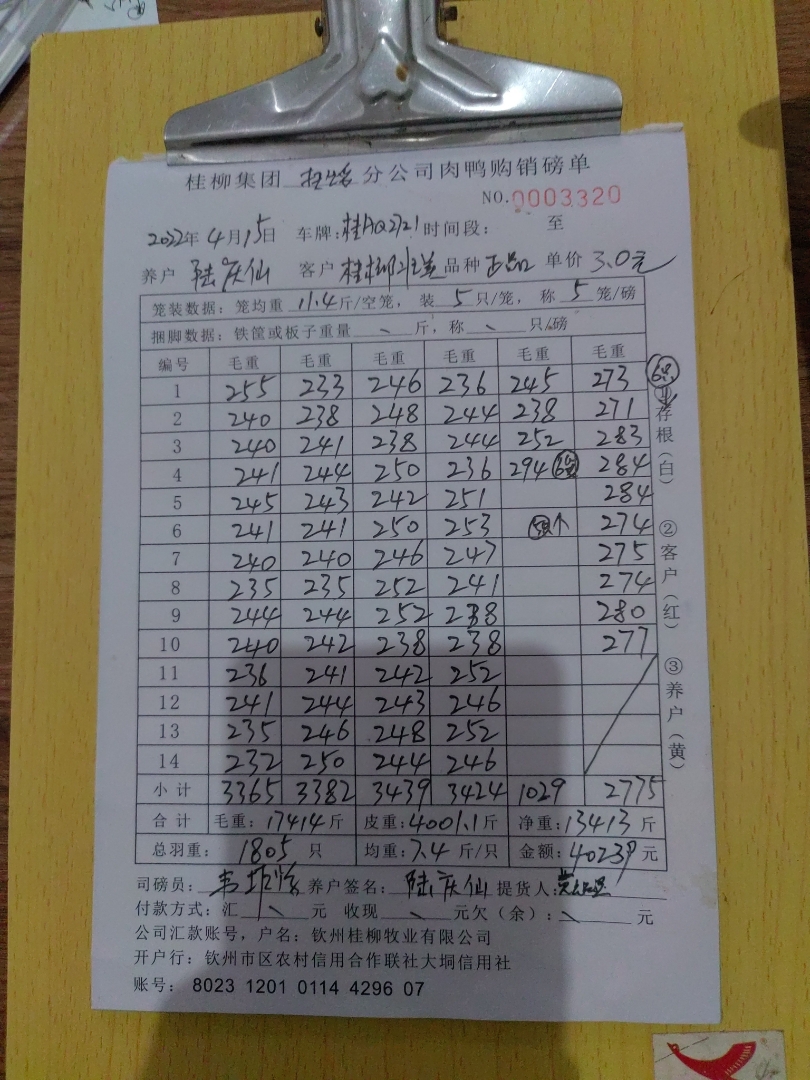 桂柳集团 分公司肉鸭购销磅单
NO.0003320
2022年4月15日 车牌:桂AQ2721 时间段: 至
养户 陆庆仙 客户 桂柳 品种 正品 单价 3.0元
笼装数据:笼均重 11.4斤/空笼, 装 5只/笼, 称 5笼/磅
捆脚数据:铁筐或板子重量 、 斤,称 、 只/磅
编号 毛重 毛重 毛重 毛重 毛重 毛重
1 255 233 246 236 245 273 6只
2 240 238 248 244 238 271
3 240 241 238 244 252 283
4 241 244 250 236 294 284
5 245 243 242 251 284
6 241 241 250 253 274
7 240 240 246 247 275
8 235 235 252 241 274
9 244 244 252 238 280
10 240 242 238 238 277
11 236 241 242 252
12 241 244 243 246
13 235 246 248 252
14 232 250 244 246
小计 3365 3382 3439 3424 1029 2775
合计 毛重:17414斤 皮重:4001.1斤 净重:13413斤
总羽重: 1805 只 均重:7.4 斤/只 金额:40239元
司磅员: 养户签名: 陆庆仙 提货人:
付款方式:汇 、 元 收现 、 元欠(余): 、 元
公司汇款账号,户名:钦州桂柳牧业有限公司
开户行:钦州市区农村信用合作联社大垌信用社
账号: 8023 1201 0114 4296 07
①存根(白)
②客户(红)
③养户(黄)